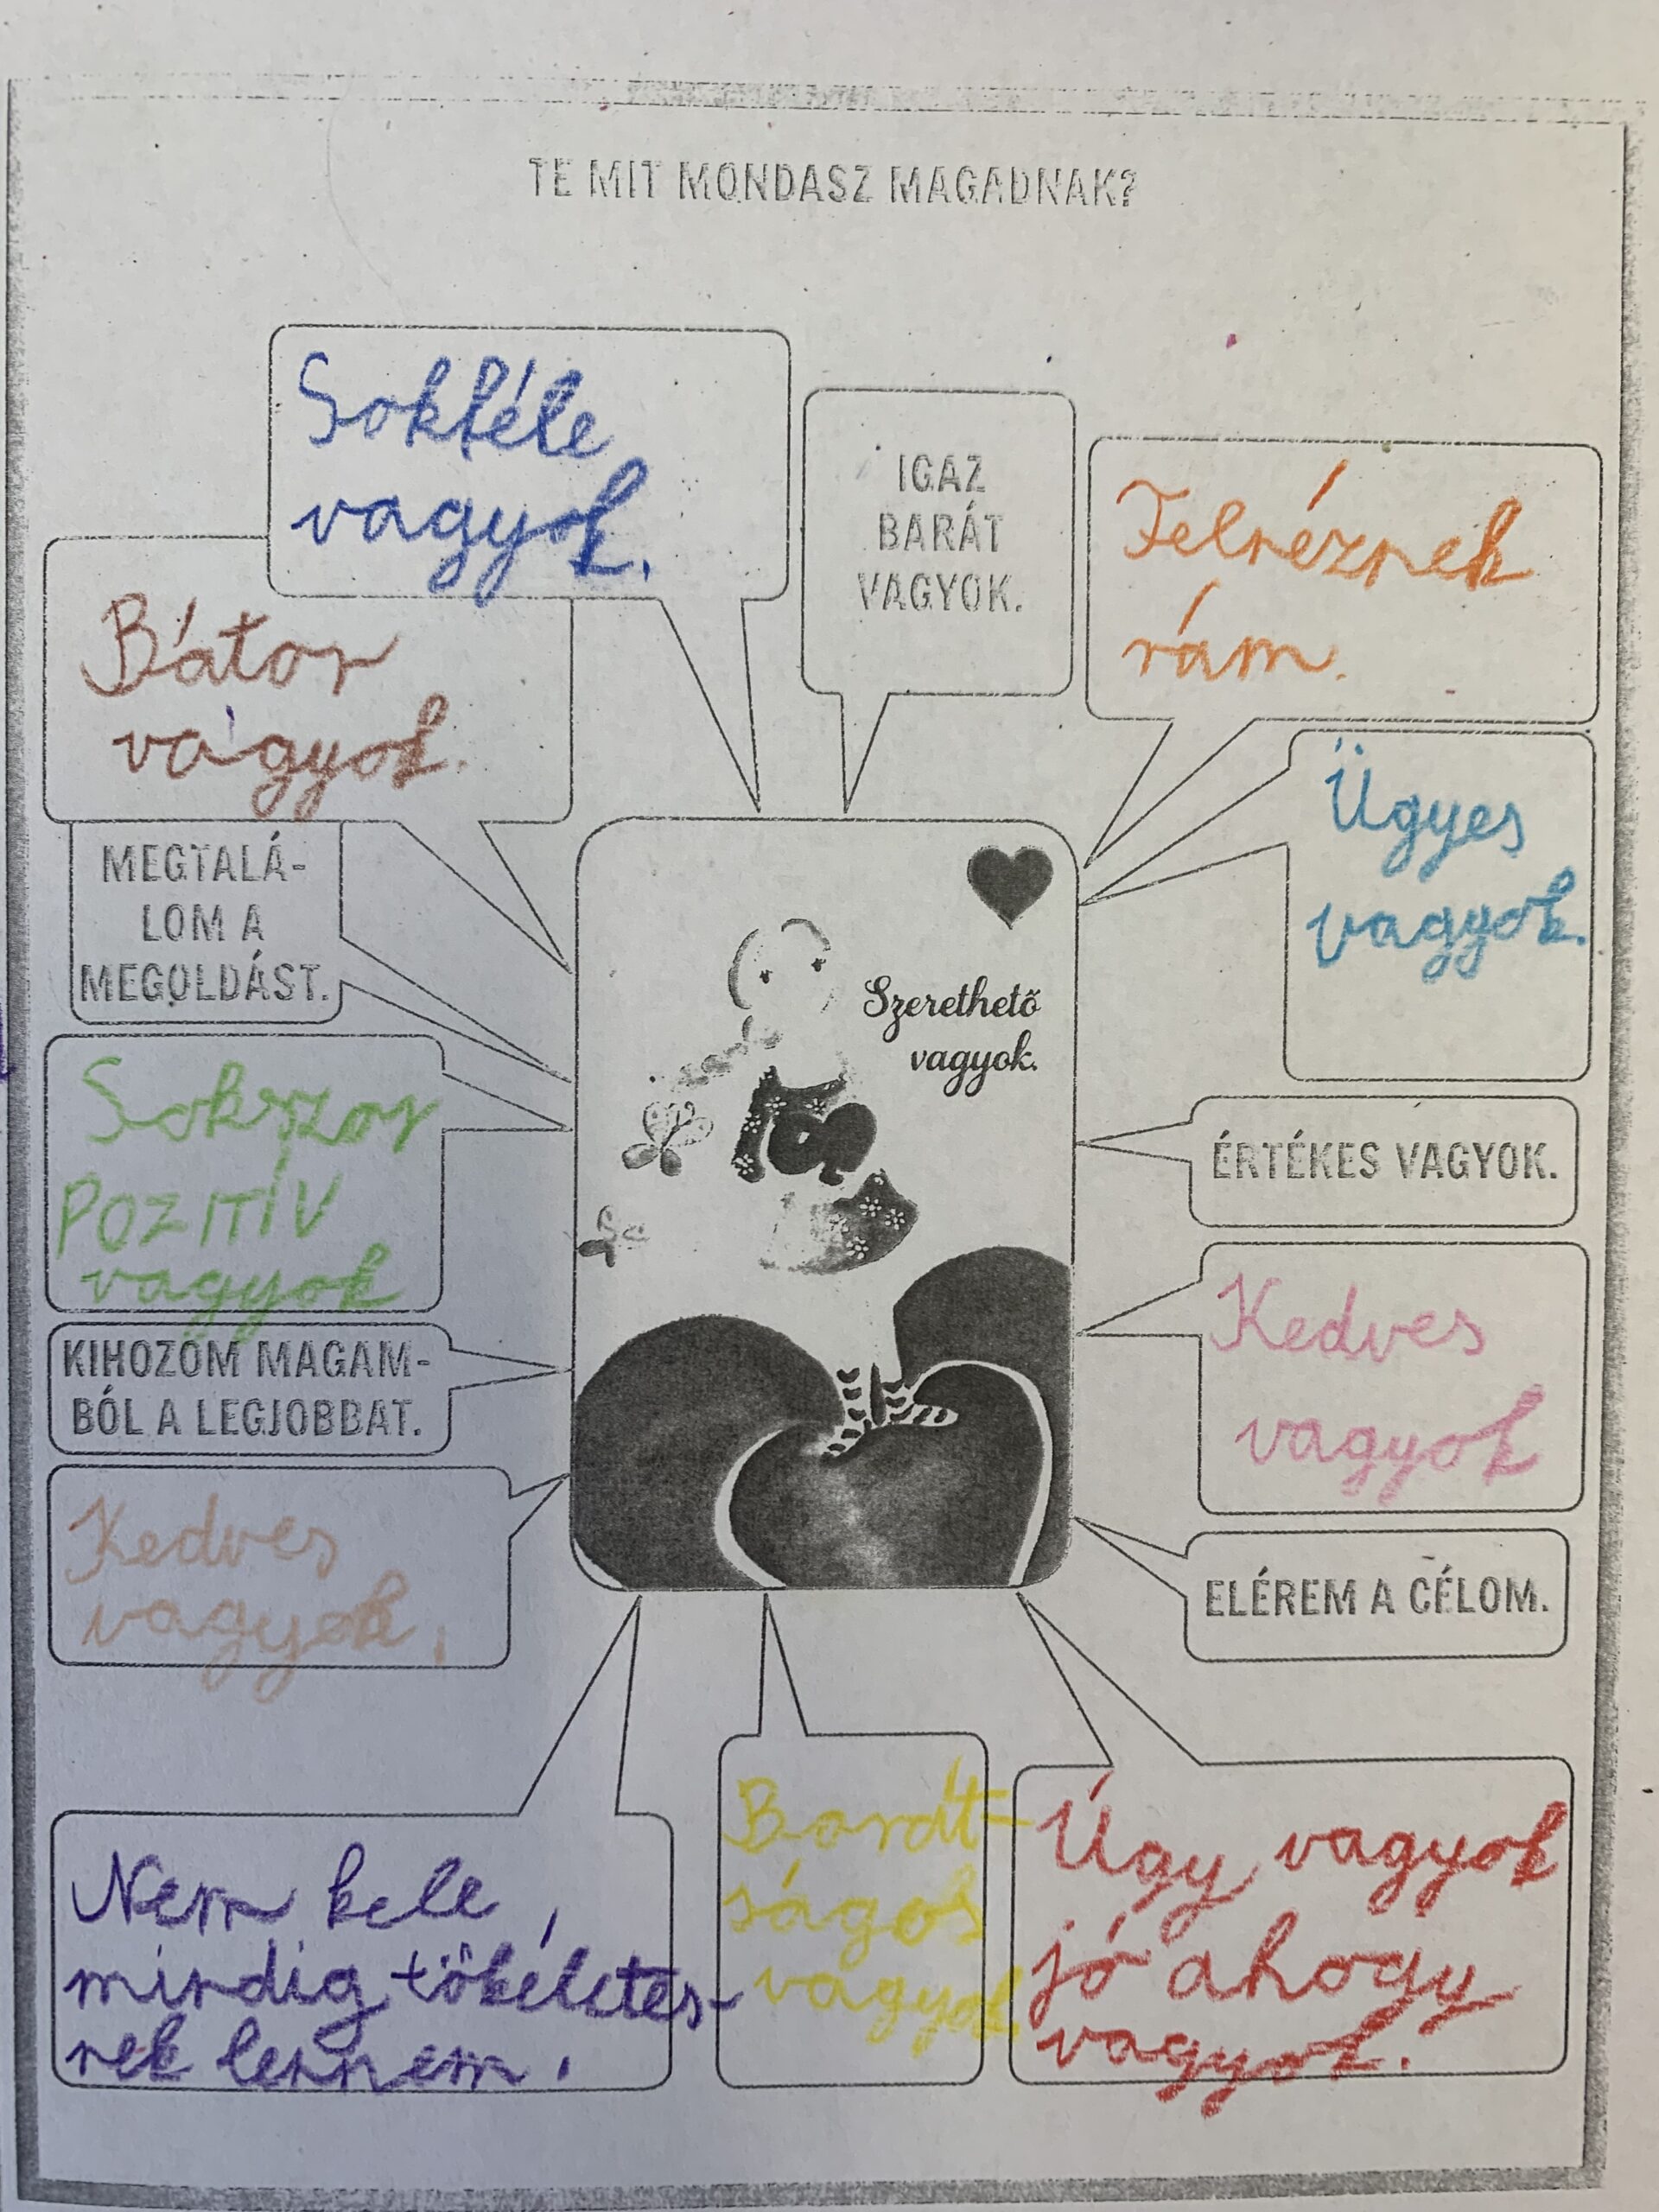 TE MIT MONDASZ MAGADNAK?
Sokféle
vagyok.
IGAZ
BARÁT
VAGYOK.
Felnéznek
rám.
Bátor
vagyok.
Ügyes
vagyok.
MEGTALÁ-
LOM A
MEGOLDÁST.
Szerethető
vagyok.
Sokszor
POZITÍV
vagyok
ÉRTÉKES VAGYOK.
KIHOZOM MAGAM-
BÓL A LEGJOBBAT.
Kedves
vagyok
Kedves
vagyok.
ELÉREM A CÉLOM.
Nem kele
mindig tökéletes-
nek lennem.
Barát-
ságos
vagyok.
Úgy vagyok
jó ahogy
vagyok.